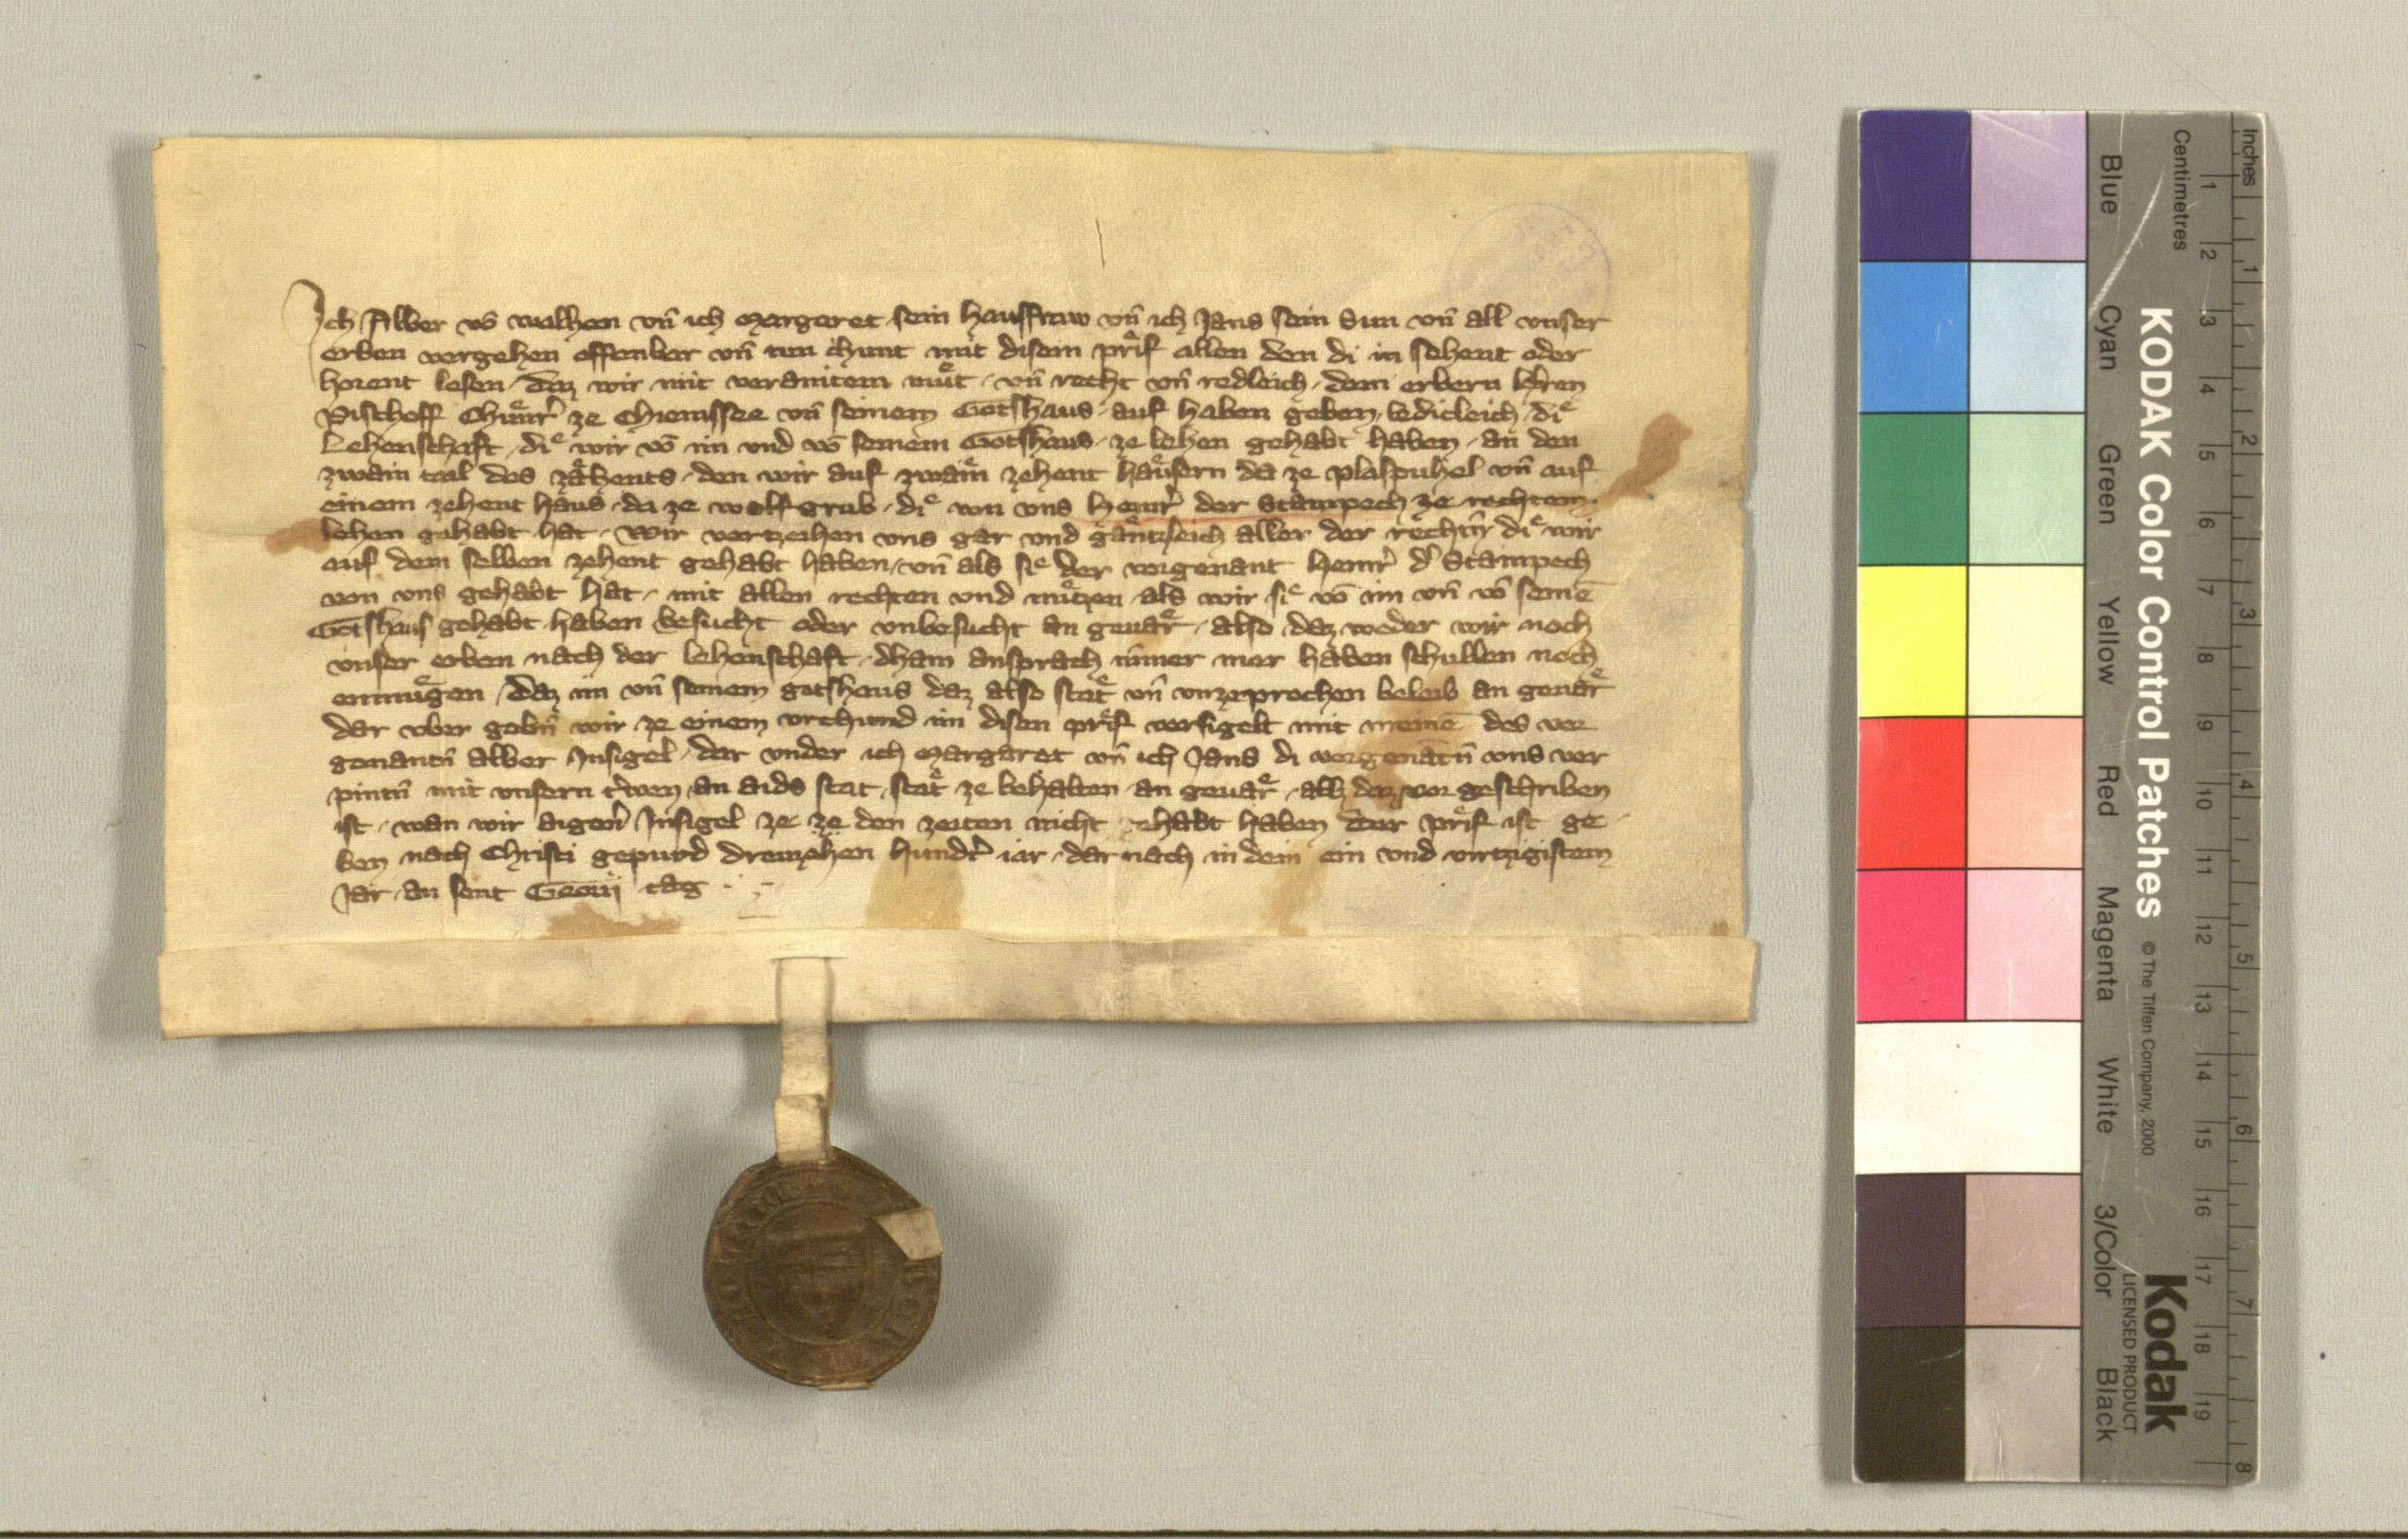 Ich Alber vō walhen vn̄ ich Margaret sein hausfraw vn̄ ich Jans sein Sun vn̄ all vnser
erben vergehen offenbar vn̄ tun chunt mit disem prif allen den di in sehent oder
horent lesen daz wir mit verainitem mut vn̄ recht vn̄ redleich dem erbern
Pischoff ze Chiemssee vn̄ seinem Gotshaus auf haben geben ledicleich die
Lehenschaft die wir vō im vnd vō seinem Gotshaus ze lehen gehabt haben an den
zwain tail des zähents den wir auf zwain zehent häusern da ze plaspuhel vn̄ auf
einem zehent haus da ze wolfgrub die von vns Heinr̄ der Stampech ze rechtem
lehen gehabt hat Wir vertzeihen vns gar vnd gäntzleich aller der die wir
auf dem selben zehent gehabt haben vn̄ als sie der vorgenant Heinr̄ d̄ Stampech
von vns gehabt hat mit allen rechten vnd nützen als wir sie vō im vn̄ vō seinē
Gotshaus gehabt haben besucht oder vnbesucht an geuär also daz weder wir noch
vnser erben nach der lehenschaft dhain ansprach immer mer haben schullen noch
enmugen daz im vn̄ seinem gotshaus daz also stät vn̄ vnzeprochen beleib an geuär
dar vber gebn̄ wir ze einem vrchund im disen prif versigelt mit meinē des vor
genantn̄ alber Insigel dar vnder ich Margaret vn̄ ich Jans di vorgenatn̄ vns ver
pintn̄ mit vnsern an aids stat stät ze behalten an geuär daz vor geschriben
ist wan wir aigen̄ Insigel ze ze den zeiten nicht gehabt haben Der prif ist ge
ben nach Christi gepurd drewzehen hundt̄ iar dar nach in dem ein vnd virtzigistem
Jar an sent Georij tag
KODAK Color Control Patches
© The Tiffen Company, 2000
Kodak
LICENSED PRODUCT
Blue Cyan Green Yellow Red Magenta White 3/Color Black
Inches 1 2 3 4 5 6 7 8
Centimetres 1 2 3 4 5 6 7 8 9 10 11 12 13 14 15 16 17 18 19